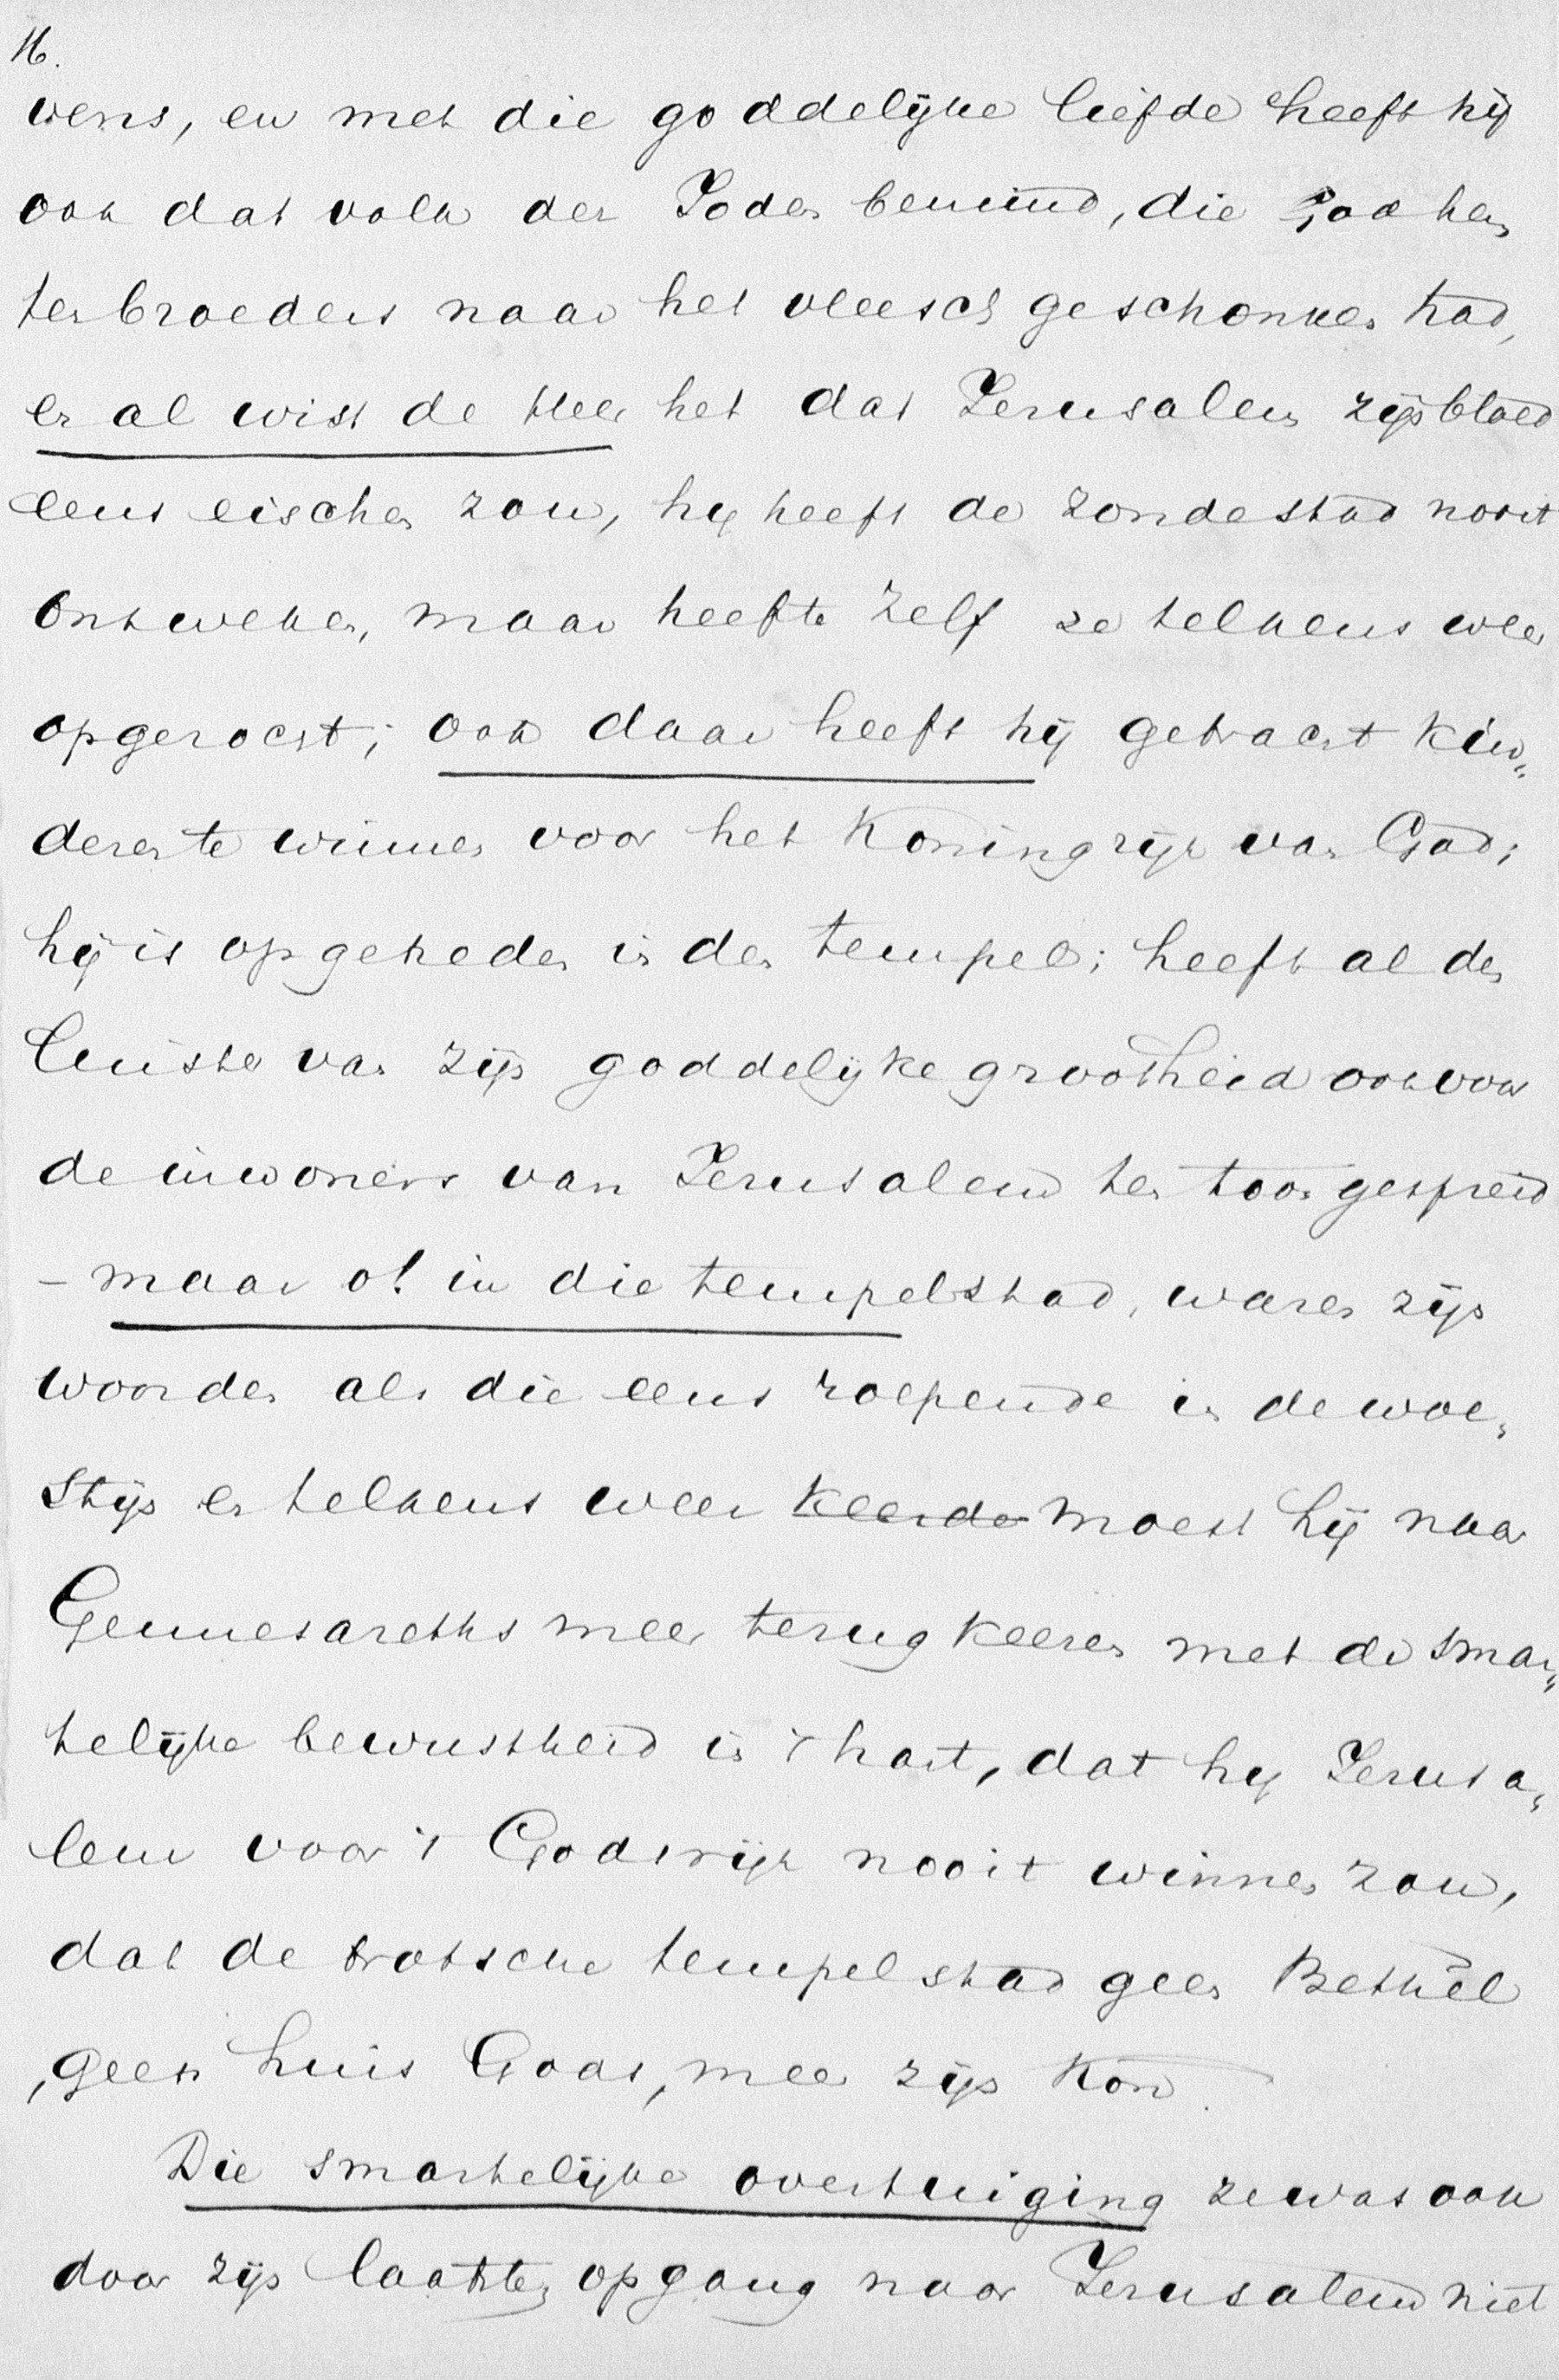 16.
vens, en met die goddelijke liefde heeft hij
ook dat volk der Joden bemind, die God hem
ter broeders naar het vleesch geschonken had,
en al wist de Heer het dat Jerusalem zijn bloed
eens eischen zou, hij heeft de zondestad nooit
ontweken, maar heeft zelf ze telkens weer
opgezocht; ook daar heeft hij getracht kin„
deren te winnen voor het Koningrijk van God;
hij is opgetreden in den tempel; heeft al den
luister van zijn goddelijke grootheid ook voor
de inwoners van Jerusalem ten toon gespreid
- maar o! in die tempelstad, waren zijn
woorden als die eens roepende in de woe„
stijn en telkens weer keerde moest hij naar
Gennesareths meer terug keeren met de smar„
telijke bewustheid in 't hart, dat hij Jerusa„
lem voor 't Godsrijk nooit winnen zou,
dat de trotsche tempelstad geen Bethel
, geen huis Gods, meer zijn kon.
Die smartelijke overtuiging ze was ook
door zijn laatsten opgang naar Jerusalem niet